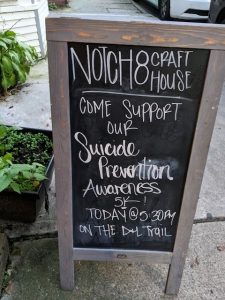 NOTCH8 CRAFT
HOUSE
COME SUPPORT
OUR
Suicide
Prevention
Awareness
5K!
TODAY @ 5:30PM
ON THE D+L TRAIL